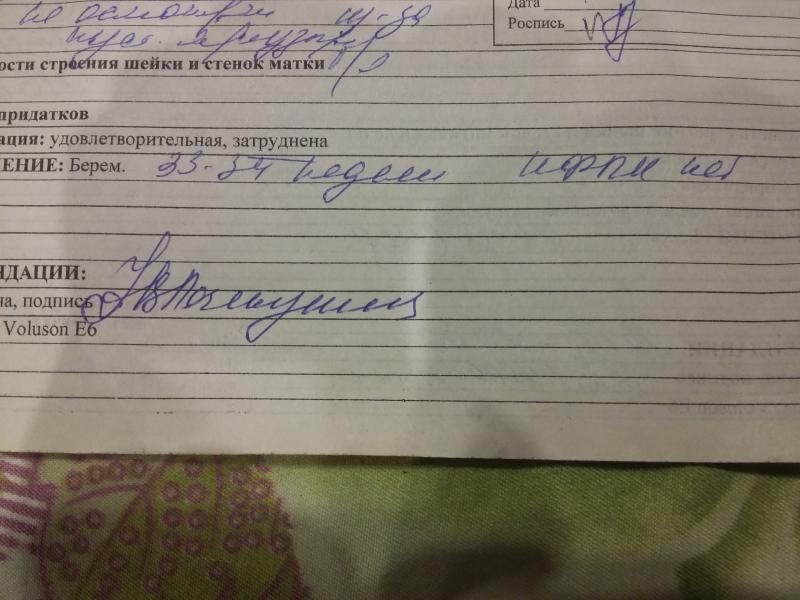 Дата
не осмотрен из-за
Роспись
ости строения шейки и стенок матки
придатков
ация: удовлетворительная, затруднена
ЧЕНИЕ: Берем. 33-34 недели нет
НДАЦИИ:
на, подпись
Voluson E6